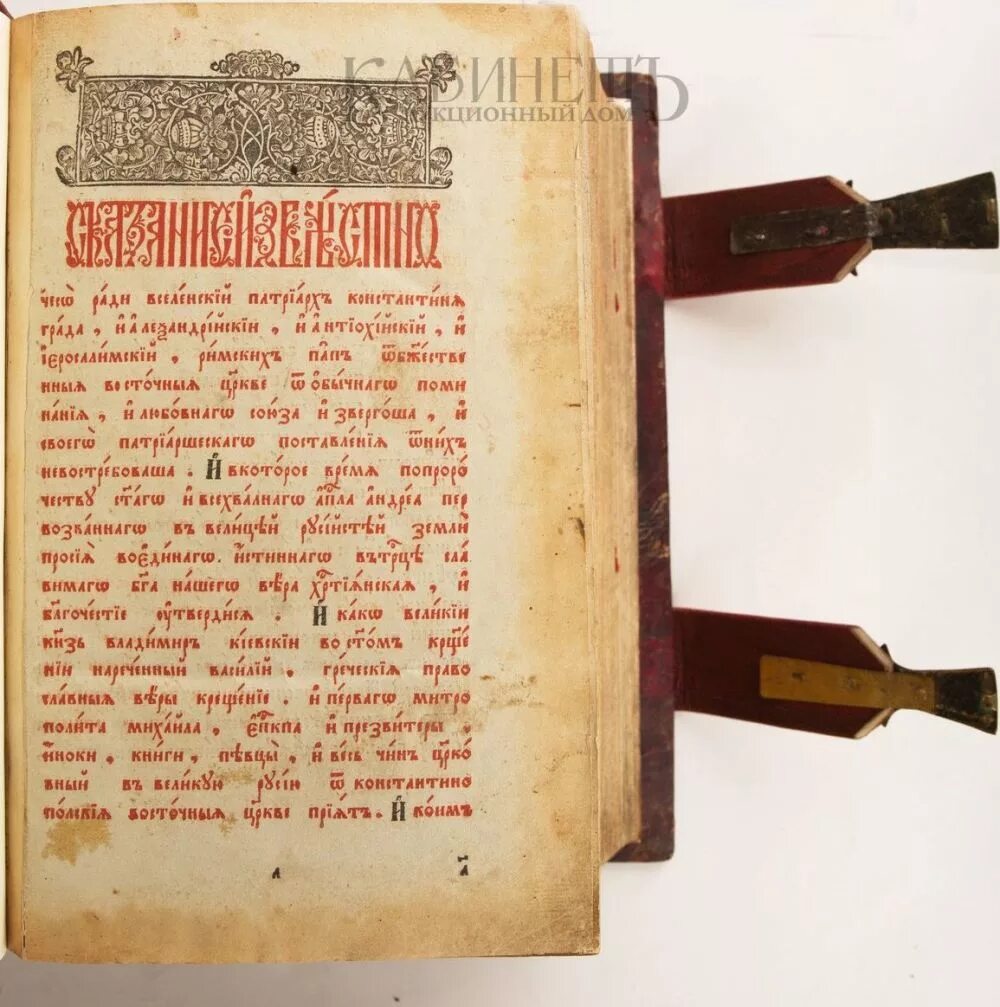 КАБИНЕТЪ
АУКЦИОННЫЙ ДОМ
СКАЗАНИЕ И ЗВѢСТНО
чесѡ̀ ра́ди вселе́нскїй патрїа́рхъ константи́ня
гра́да , и҆ а҆леѯандрі́йскїи , и҆ а҆нтїохі́йскїи , и҆
і҆еросали́мскїй , ри́мскихъ па́пъ ѿ бж҃е́стве
нныя восто́чныя цр҃кве ѿ ѻ҆бы́чнагѡ поми
на́нїя , и҆ любо́внагѡ сою́за и҆зверго́ша , и҆
своегѡ̀ патрїа́ршескагѡ поставле́нїя ѿ ни́хъ
невостре́боваша . И҆ вкото́рое вре́мя попроро́
честву ст҃а́гѡ и҆ всехва́лнагѡ а҆пⷭ҇ла а҆ндре́а пер
возва́ннагѡ въ вели́цѣй русі́йстѣй земли̑
просїѧ̀ воеди́нагѡ . и҆́стиннагѡ въ трⷪ҇цѣ сла́
вимагѡ бг҃а на́шегѡ вѣ́ра хрⷭ҇тїя́нская , и҆
бл҃гоче́стїе ᲂу҆тверди́ся . И҆ ка́кѡ вели́кїи
кн҃зь влади́миръ кі́евскїи во ст҃о́мъ кр҃ще́
нїи нарече́нный васи́лїй , гре́ческїя право
сла́вныя вѣ́ры креще́нїе . и҆ пе́рвагѡ митро
поли́та миха́ила , е҆пⷭ҇кпа и҆ презви́теры .
и҆́ноки , кни́ги , пѣвцы̀ , и҆ ве́сь чи́нъ цр҃ко́
вный въ вели́кую русі́ю ѿ константино
по́лскїя восто́чныя цр҃кве прїя́тъ . И҆ ко́имъ
л а҃